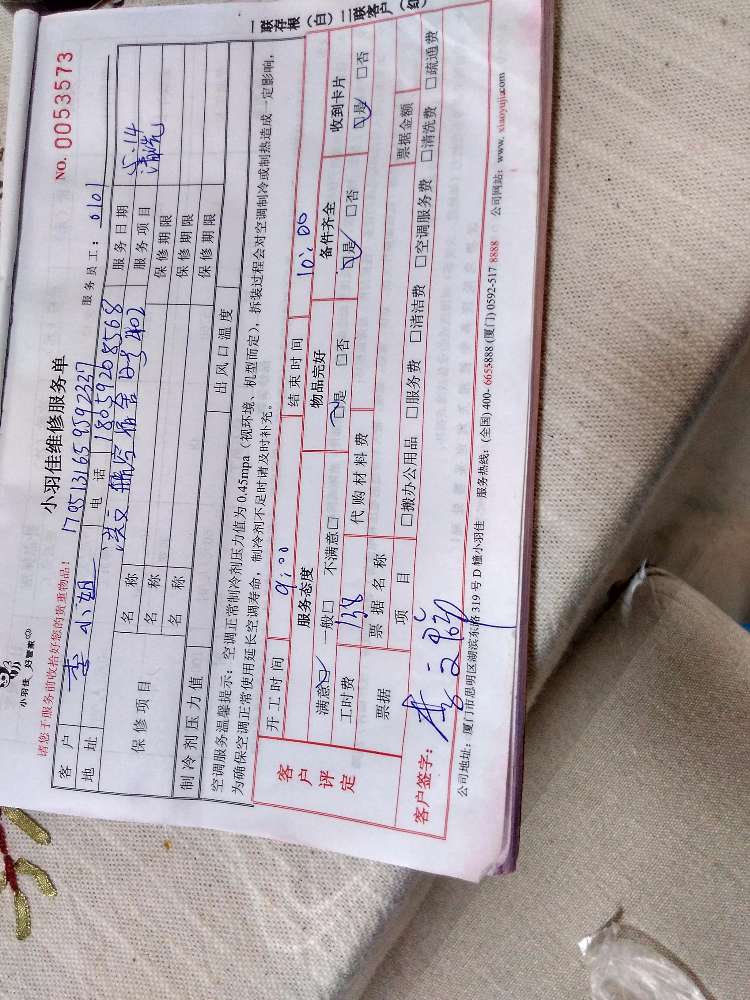 小羽佳 好管家
小羽佳维修服务单
NO. 0053573
请您于服务前收拾好您的贵重物品!
1795131659592327
服务员工: 0101
客户 李小姐 电话 18059208568 服务日期 5.14
地址 402 服务项目 清洗
保修项目 名称 保修期限
名称 保修期限
名称 保修期限
制冷剂压力值 出风口温度
空调服务温馨提示: 空调正常制冷剂压力值为0.45mpa (视环境、机型而定), 拆装过程会对空调制冷或制热造成一定影响,
为确保空调正常使用延长空调寿命, 制冷剂不足时请及时补充。
开工时间 9:00 结束时间 10:00
客户评定
服务态度 物品完好 备件齐全 收到卡片
满意☑ 一般□ 不满意□ ☑是 □否 ☑是 □否 ☑是 □否
工时费 138 代购材料费
票据 票据名称 票据金额
项目 □搬办公用品 □服务费 □清洁费 □空调服务费 □清洗费 □疏通费
客户签字:
公司地址: 厦门市思明区湖滨东路319号D幢小羽佳 服务热线: (全国) 400-6655888 (厦门) 0592-517 8888 公司网站: www.xiaoyujia.com
一联存根 (白) 二联客户 (红)